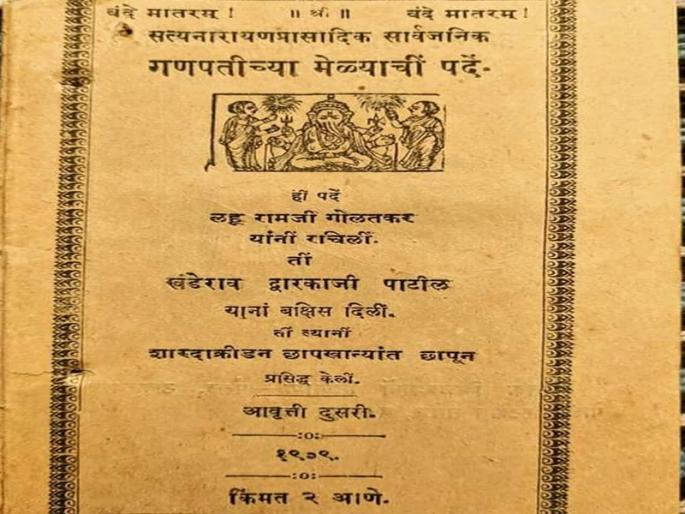 वंदे मातरम् ! ॥ श्री ॥ वंदे मातरम् !
सत्यनारायणप्रासादिक सार्वजनिक
गणपतीच्या मेळ्याचीं पदें-
हीं पदें
लहू रामजी गोलतकर
यांनीं रचिलीं.
तीं
खंडेराव द्वारकाजी पाटील
यानां बक्षिस दिलीं.
तीं त्यानीं
शारदाक्रीडन छापखान्यांत छापून
प्रसिद्ध केलीं.
आवृत्ती दुसरी.
१९०९.
किंमत २ आणे.